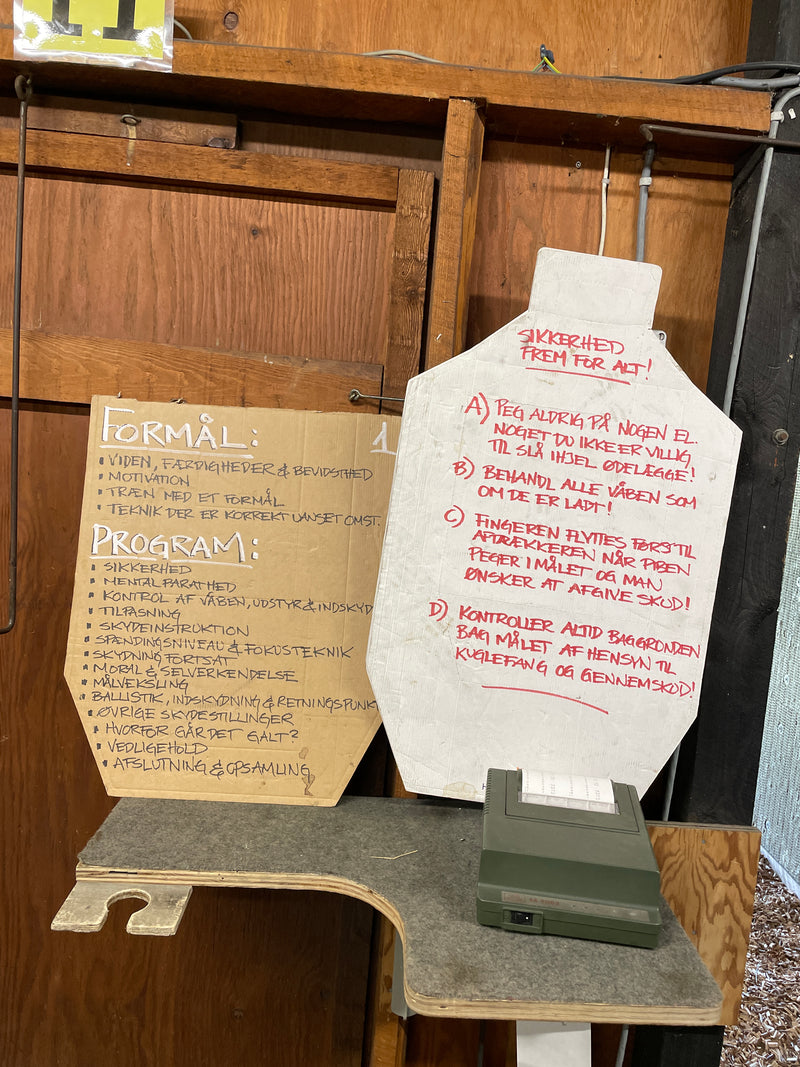 FORMÅL:
1
▪ VIDEN, FÆRDIGHEDER & BEVIDSTHED
▪ MOTIVATION
▪ TRÆN MED ET FORMÅL
▪ TEKNIK DER ER KORREKT UANSET OMST.
PROGRAM:
▪ SIKKERHED
▪ MENTAL PARATHED
▪ KONTROL AF VÅBEN, UDSTYR & INDSKYD
▪ TILPASNING
▪ SKYDEINSTRUKTION
▪ SPÆNDINGSNIVEAU & FOKUSTEKNIK
▪ SKYDNING FORTSAT
▪ MORAL & SELVERKENDELSE
▪ MÅLVEKSLING
▪ BALLISTIK, INDSKYDNING & RETNINGSPUNK
▪ ØVRIGE SKYDESTILLINGER
▪ HVORFOR GÅR DET GALT?
▪ VEDLIGEHOLD
▪ AFSLUTNING & OPSAMLING
SIKKERHED
FREM FOR ALT!
A) PEG ALDRIG PÅ NOGEN EL.
NOGET DU IKKE ER VILLIG
TIL SLÅ IHJEL ØDELÆGGE!
B) BEHANDL ALLE VÅBEN SOM
OM DE ER LADT!
C) FINGEREN FLYTTES FØRST TIL
AFTRÆKKEREN NÅR PIBEN
PEGER I MÅLET OG MAN
ØNSKER AT AFGIVE SKUD!
D) KONTROLLER ALTID BAGGRONDEN
BAG MÅLET AF HENSYN TIL
KUGLEFANG OG GENNEMSKUD!